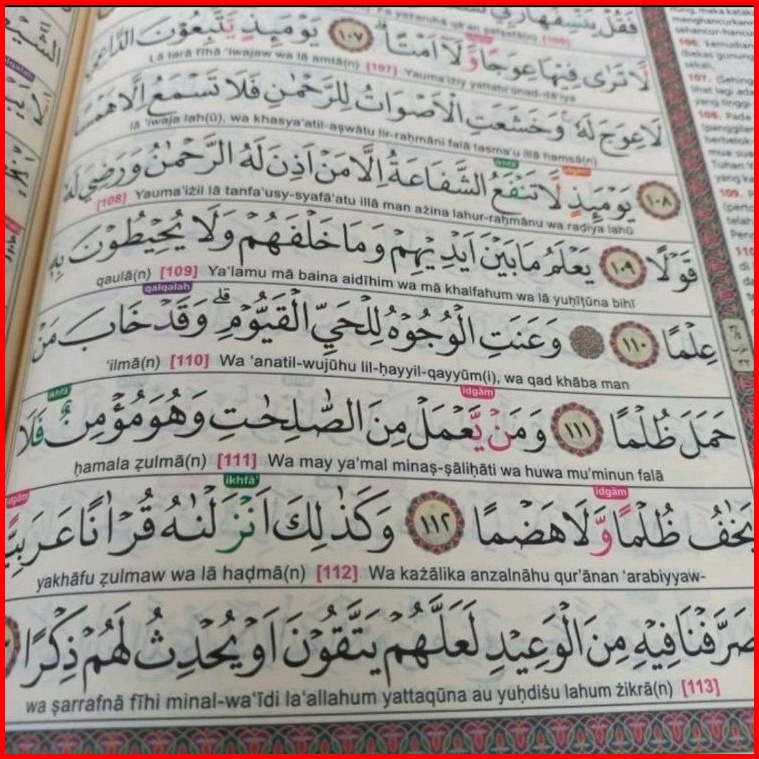 فَقُلْ يَنْسِفُهَا رَبِّيْ
لَا تَرٰى فِيْهَا عِوَجًا وَّلَآ اَمْتًا ۗ ١٠٧ يَوْمَىِٕذٍ يَّتَّبِعُوْنَ الدَّاعِيَ
Lā tarā fīhā ‘iwajaw wa lā amtā(n) [107] Yauma'iżiy yattabi‘ūnad-dā‘iya
لَا عِوَجَ لَهٗ ۚ وَخَشَعَتِ الْاَصْوَاتُ لِلرَّحْمٰنِ فَلَا تَسْمَعُ اِلَّا هَمْسًا
lā ‘iwaja lah(ū), wa khasya‘atil-aṣwātu lir-raḥmāni falā tasma‘u illā hamsā(n)
ikhfā' idgām
١٠٨ يَوْمَىِٕذٍ لَّا تَنْفَعُ الشَّفَاعَةُ اِلَّا مَنْ اَذِنَ لَهُ الرَّحْمٰنُ وَرَضِيَ لَهٗ
[108] Yauma'iżil lā tanfa‘usy-syafā‘atu illā man ażina lahur-raḥmānu wa raḍiya lahū
قَوْلًا ١٠٩ يَعْلَمُ مَا بَيْنَ اَيْدِيْهِمْ وَمَا خَلْفَهُمْ وَلَا يُحِيْطُوْنَ بِهٖ
qaulā(n) [109] Ya‘lamu mā baina aidīhim wa mā khalfahum wa lā yuḥīṭūna bihī
qalqalah
عِلْمًا ١١٠ وَعَنَتِ الْوُجُوْهُ لِلْحَيِّ الْقَيُّوْمِۗ وَقَدْ خَابَ مَنْ
‘ilmā(n) [110] Wa ‘anatil-wujūhu lil-ḥayyil-qayyūm(i), wa qad khāba man
ikhfā' idgām
حَمَلَ ظُلْمًا ١١١ وَمَنْ يَّعْمَلْ مِنَ الصّٰلِحٰتِ وَهُوَ مُؤْمِنٌ فَلَا
ḥamala ẓulmā(n) [111] Wa may ya‘mal minaṣ-ṣāliḥāti wa huwa mu'minun falā
idgām ikhfā' idgām
يَخٰفُ ظُلْمًا وَّلَا هَضْمًا ١١٢ وَكَذٰلِكَ اَنْزَلْنٰهُ قُرْاٰنًا عَرَبِيًّا
yakhāfu ẓulmaw wa lā haḍmā(n) [112] Wa każālika anzalnāhu qur'ānan ‘arabiyyaw-
صَرَّفْنَا فِيْهِ مِنَ الْوَعِيْدِ لَعَلَّهُمْ يَتَّقُوْنَ اَوْ يُحْدِثُ لَهُمْ ذِكْرًا
wa ṣarrafnā fīhi minal-wa‘īdi la‘allahum yattaqūna au yuḥdiṡu lahum żikrā(n) [113]